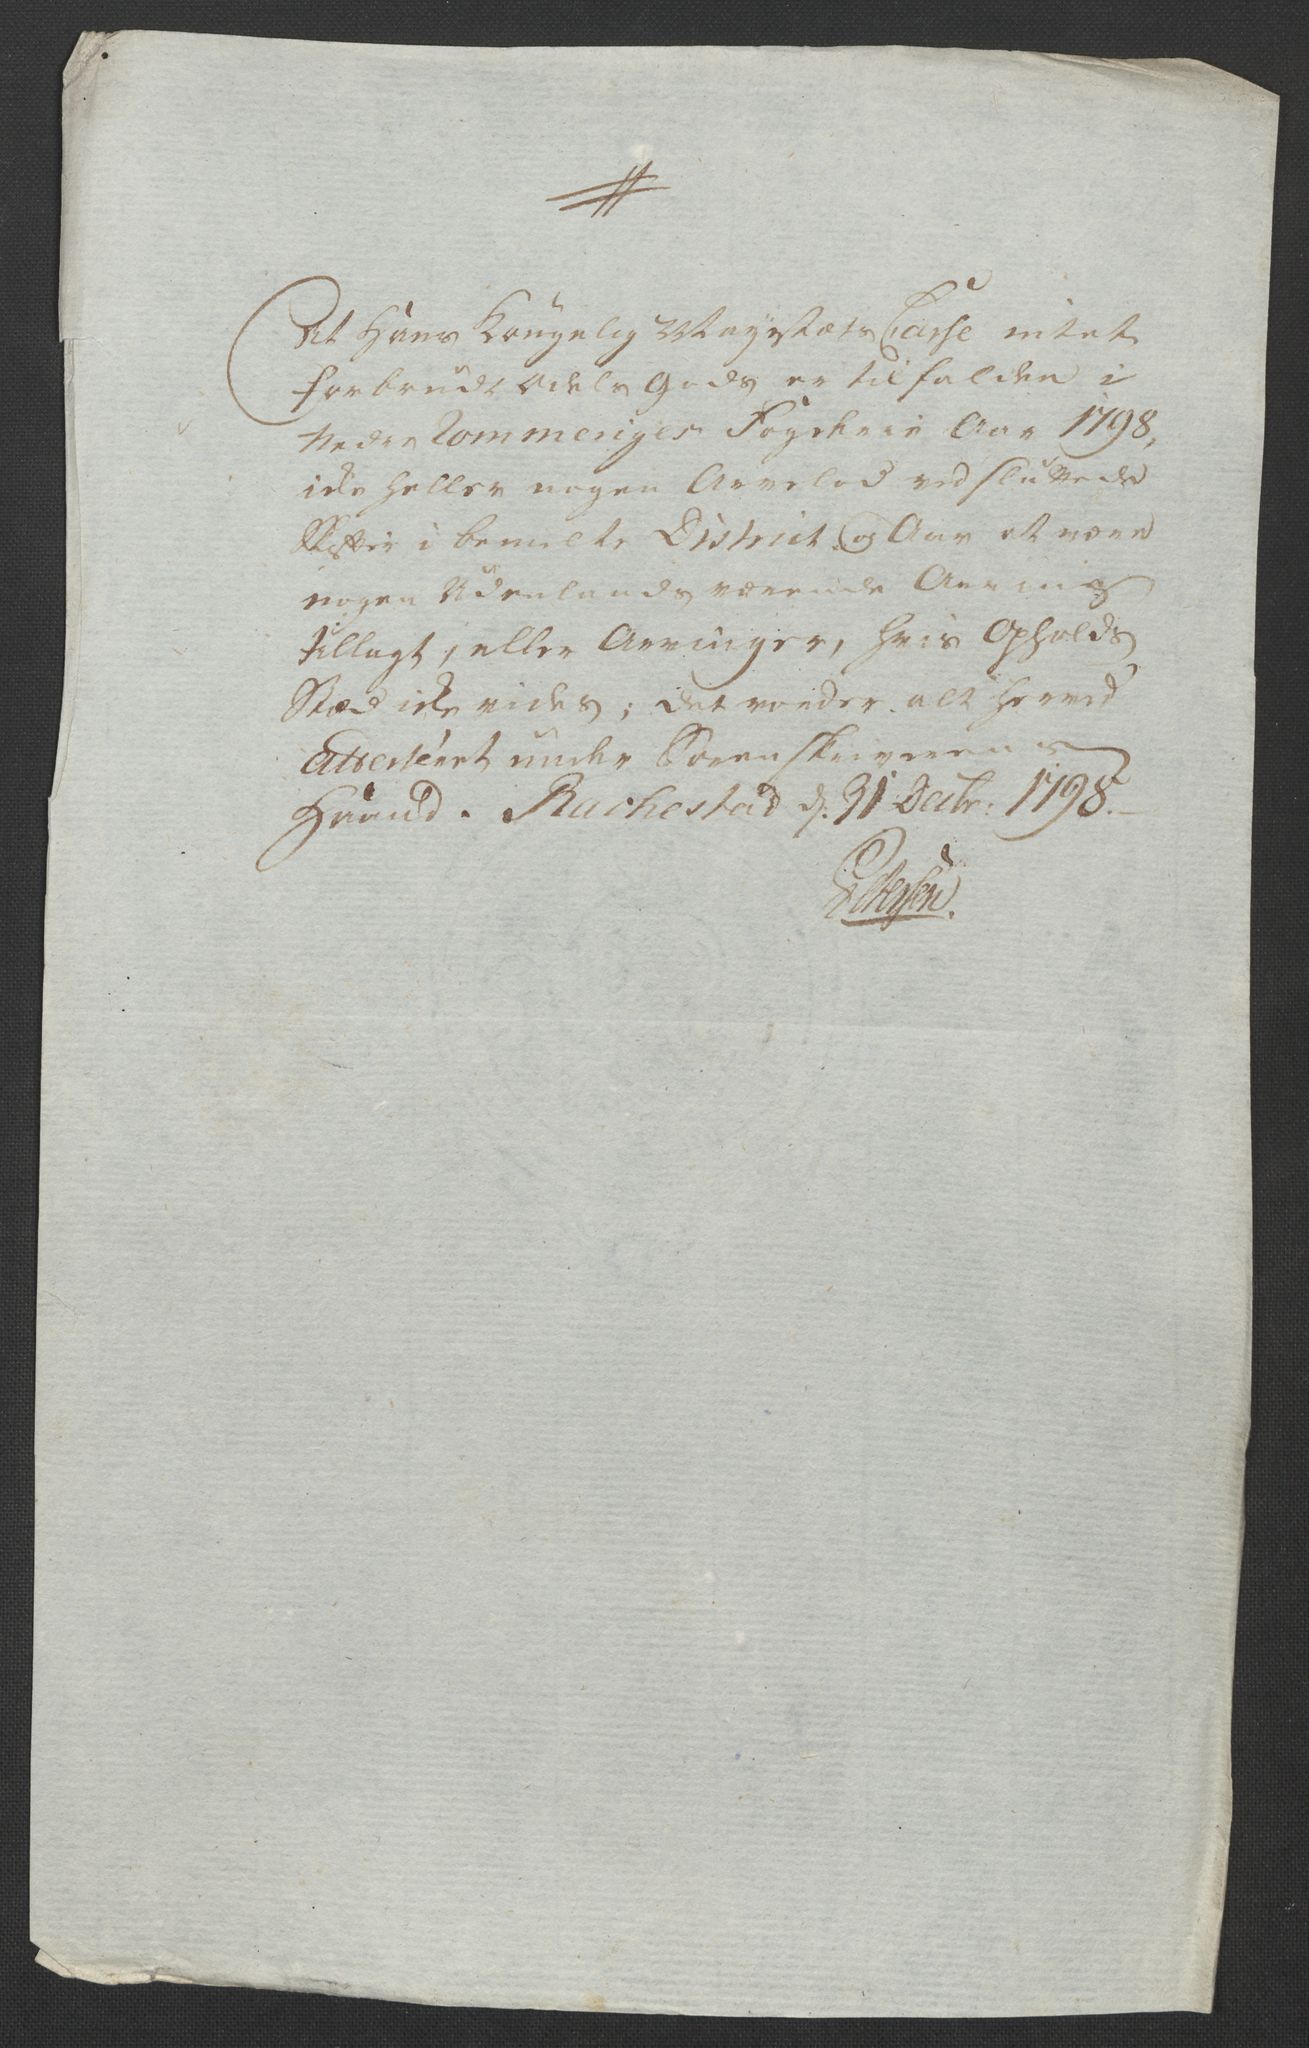 At Hans Kongelig Mayestæts Casse intet
forbrudt Odels Gods er tilfalden i
Nedre Rommeriges Fogderie Aar 1798,
ikke heller nogen Arvelod ved sluttede
Skifter i bemelte District og Aar at være
nogen Udenlands værende Arving
tillagt, eller Arvinger, hvis Opholds
Stæd ikke vides; det vorder alt herved
atterteret under Sorenskriverens
Haand. Rachestad d. 31 Decbr: 1798.